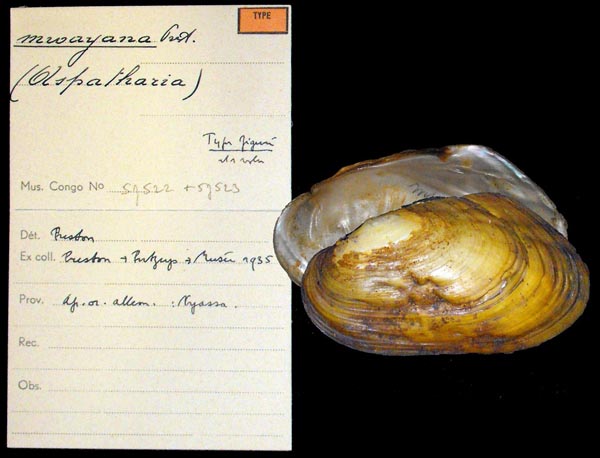 TYPE
mwayana Prst.
(Aspatharia)
Type figuré
Mus. Congo No 59522 + 59523
Dét. Preston
Ex coll. Preston → Putzeys → Musée 1935
Prov. Af. or. allem. : Nyassa.
Rec.
Obs.